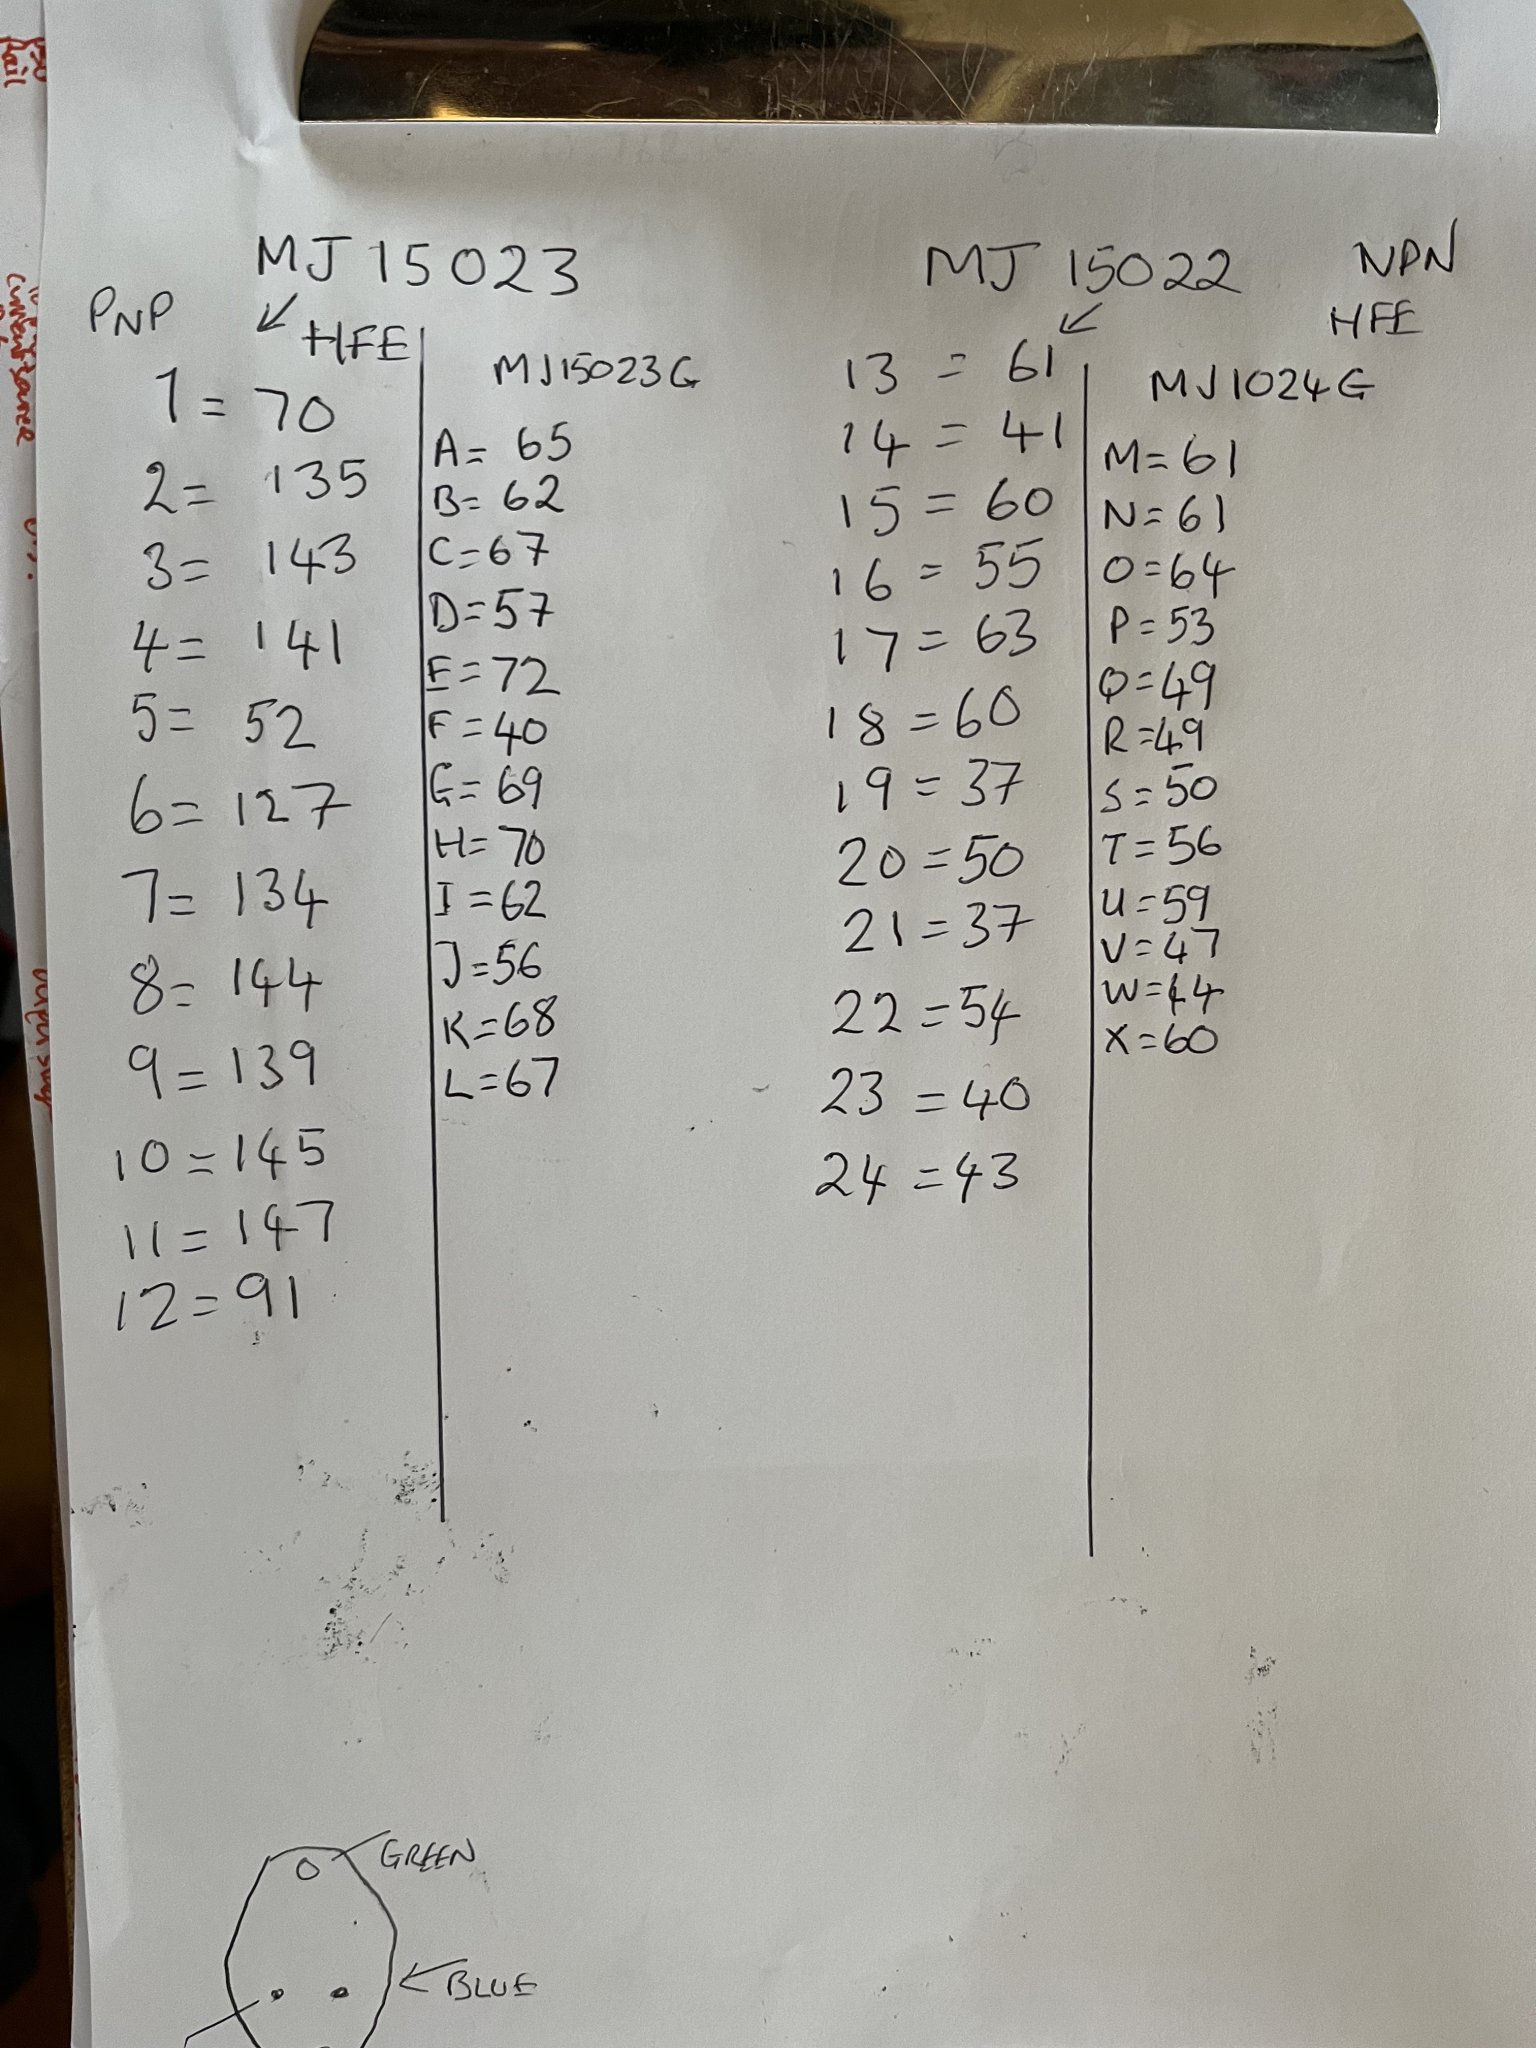 MJ15023
PNP
HFE
1 = 70
2 = 135
3 = 143
4 = 141
5 = 52
6 = 127
7 = 134
8 = 144
9 = 139
10 = 145
11 = 147
12 = 91
MJ15023G
A = 65
B = 62
C = 67
D = 57
E = 72
F = 40
G = 69
H = 70
I = 62
J = 56
K = 68
L = 67
MJ 15022
NPN
HFE
13 = 61
14 = 41
15 = 60
16 = 55
17 = 63
18 = 60
19 = 37
20 = 50
21 = 37
22 = 54
23 = 40
24 = 43
MJ1024G
M = 61
N = 61
O = 64
P = 53
Q = 49
R = 49
S = 50
T = 56
U = 59
V = 47
W = 44
X = 60
GREEN
BLUE